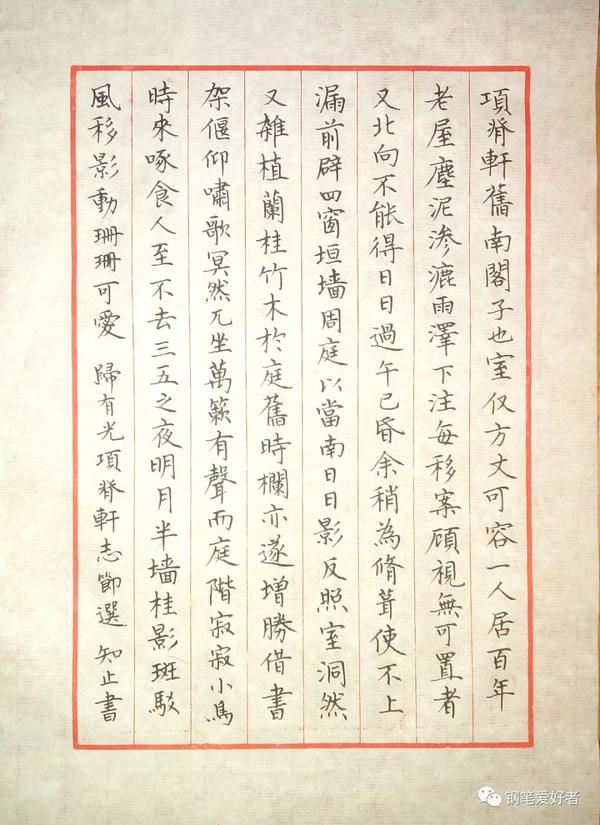 項脊軒舊南閣子也室仅方丈可容一人居百年
老屋塵泥渗漉雨澤下注每移案顧視無可置者
又北向不能得日日過午已昏余稍為脩葺使不上
漏前辟四窗垣墙周庭以當南日日影反照室洞然
又雑植蘭桂竹木於庭舊時欄亦遂増勝借書
架偃仰嘯歌冥然兀坐萬籁有聲而庭階寂寂小鳥
時來啄食人至不去三五之夜明月半墙桂影斑駁
風移影動珊珊可愛 歸有光項脊軒志節選 知止書
钢笔爱好者